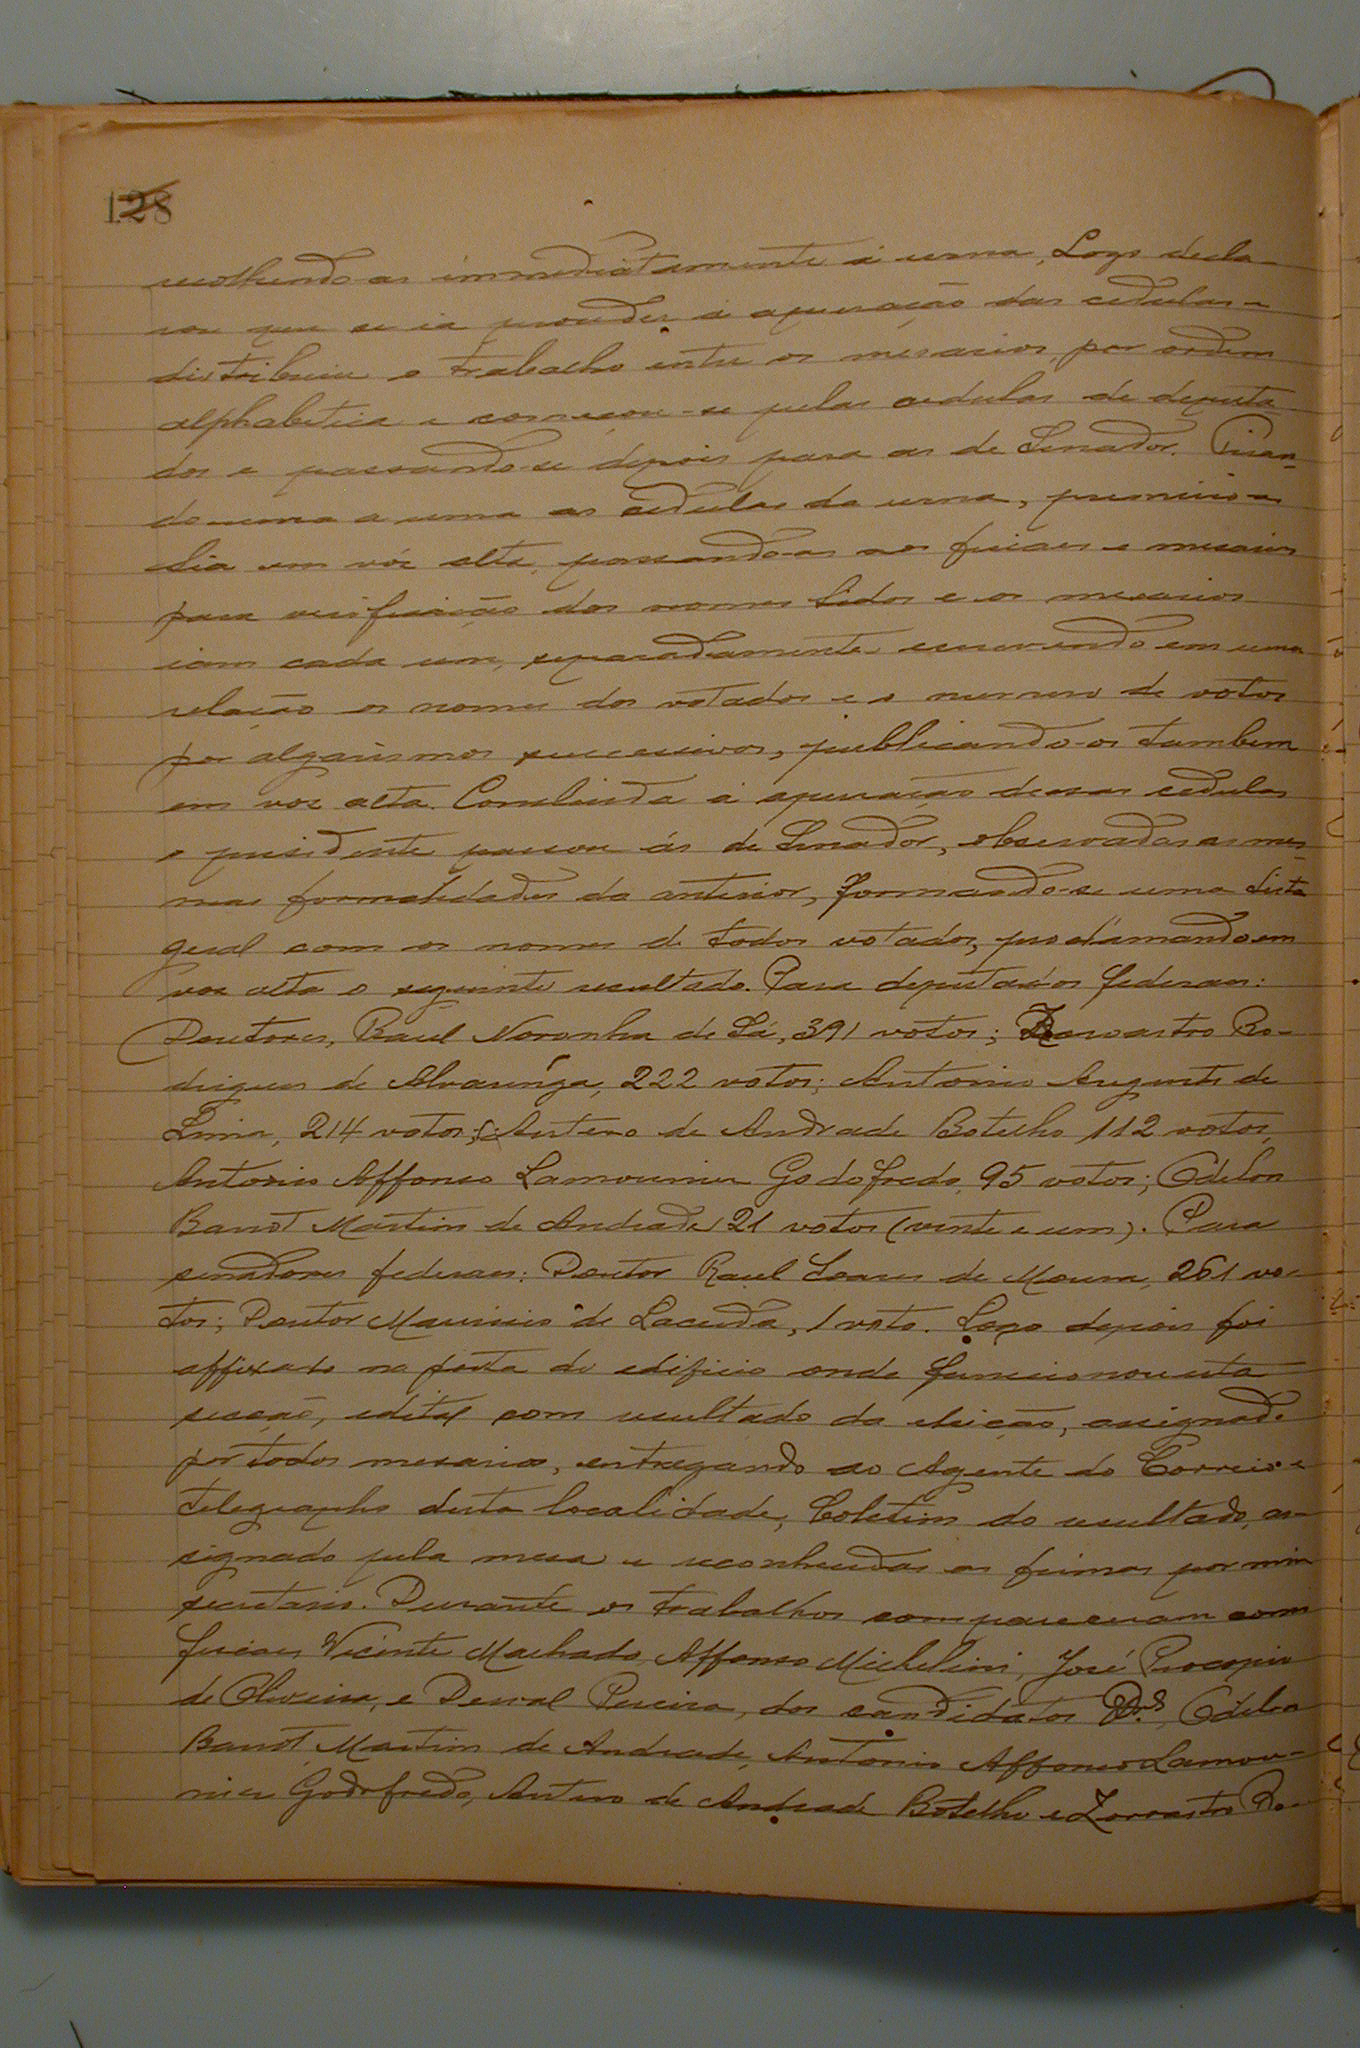 128
recolhendo-as immediatamente á urna. Logo decla-
rou que se ia proceder á apuração das cedulas e
distribuiu o trabalho entre os mesarios, por ordem
alphabetica e começou-se pelas cedulas de deputa
dos e passando-se depois para as de Senador. Tiran-
do uma a uma as cedulas da urna,
lia em vóz alta, passando-as aos fiscaes e mesarios
para verificação dos nomes lidos e os mesarios
iam cada um, separadamente escrevendo em uma
relação os nomes dos votados e o numero de votos
por algarismos successivos, publicando-os tambem
em voz alta. Concluida a apuração dessas cedulas
o presidente passou ás de Senador, observadas as mes-
mas formalidades da anterior, formando-se uma lista
geral com os nomes de todos votados, proclamando em
voz alta o seguinte resultado. Para deputados federaes:
Doutores, Raul Noronha de Sá, 391 votos; Zoroastro Ro-
drigues de Alvarenga, 222 votos; Antonio Augusto de
Lima, 214 votos; Antero de Andrade Botelho 112 votos,
Antonio Affonso Lamounier Godofredo, 95 votos; Odilon
Barrot Martins de Andrade 21 votos (vinte e um). Para
senadores federaes: Doutor Raul Soares de Moura, 261 vo-
tos; Doutor Mauricio de Lacerda, 1 voto. Logo depois foi
affixado na porta do edificio onde funccionou esta
secção, edital com resultado da eleição, assignado
por todos mesarios, entregando ao Agente do Correio e
Telegrapho desta localidade, boletim do resultado, as-
signado pela mesa e reconhecidas as firmas por mim
secretario. Durante os trabalhos compareceram como
fiscaes Vicente Machado, Affonso Michelini, José Procopio
de Oliveira, e Derval Pereira, dos candidatos Drs, Odilon
Barrot Martins de Andrade, Antonio Affonso Lamou-
nier Godofredo, Antero de Andrade Botelho e Zoroastro Ro-